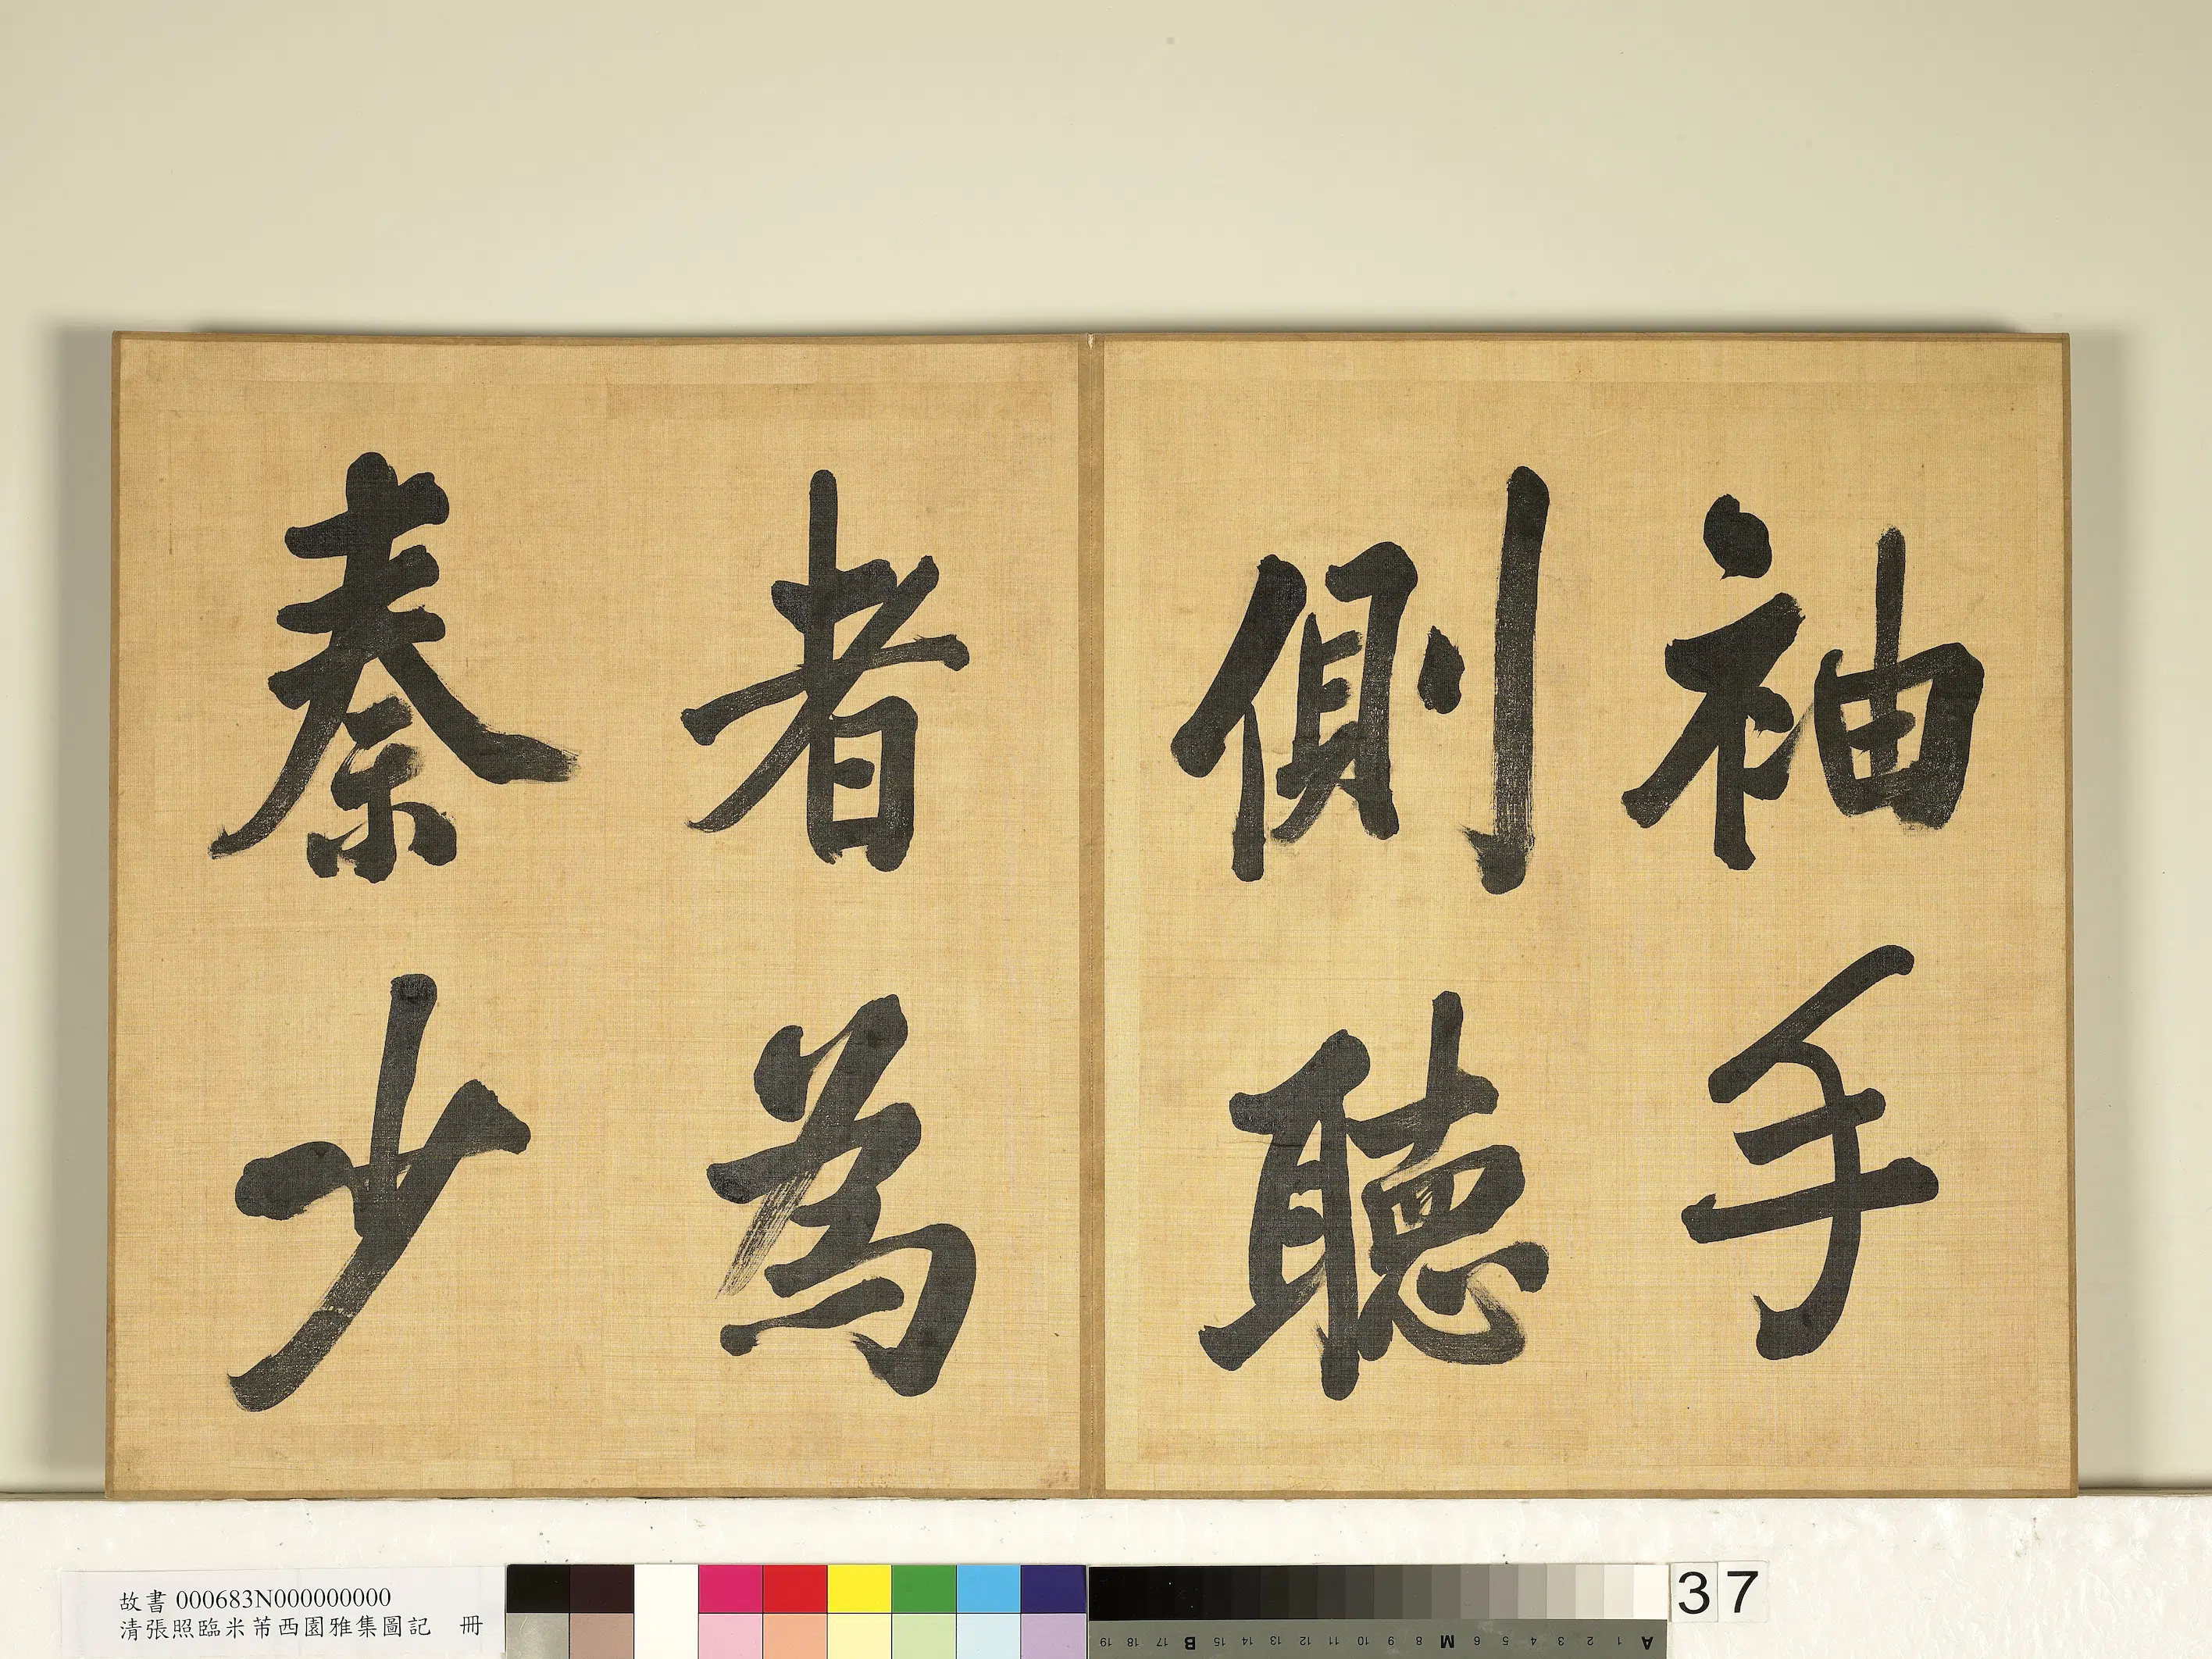 袖手
側聽
者為
秦少
故書 000683N000000000
清張照臨米芾西園雅集圖記 冊
37
A 1 2 3 4 5 6 M 8 9 10 11 12 13 14 15 B 17 18 19